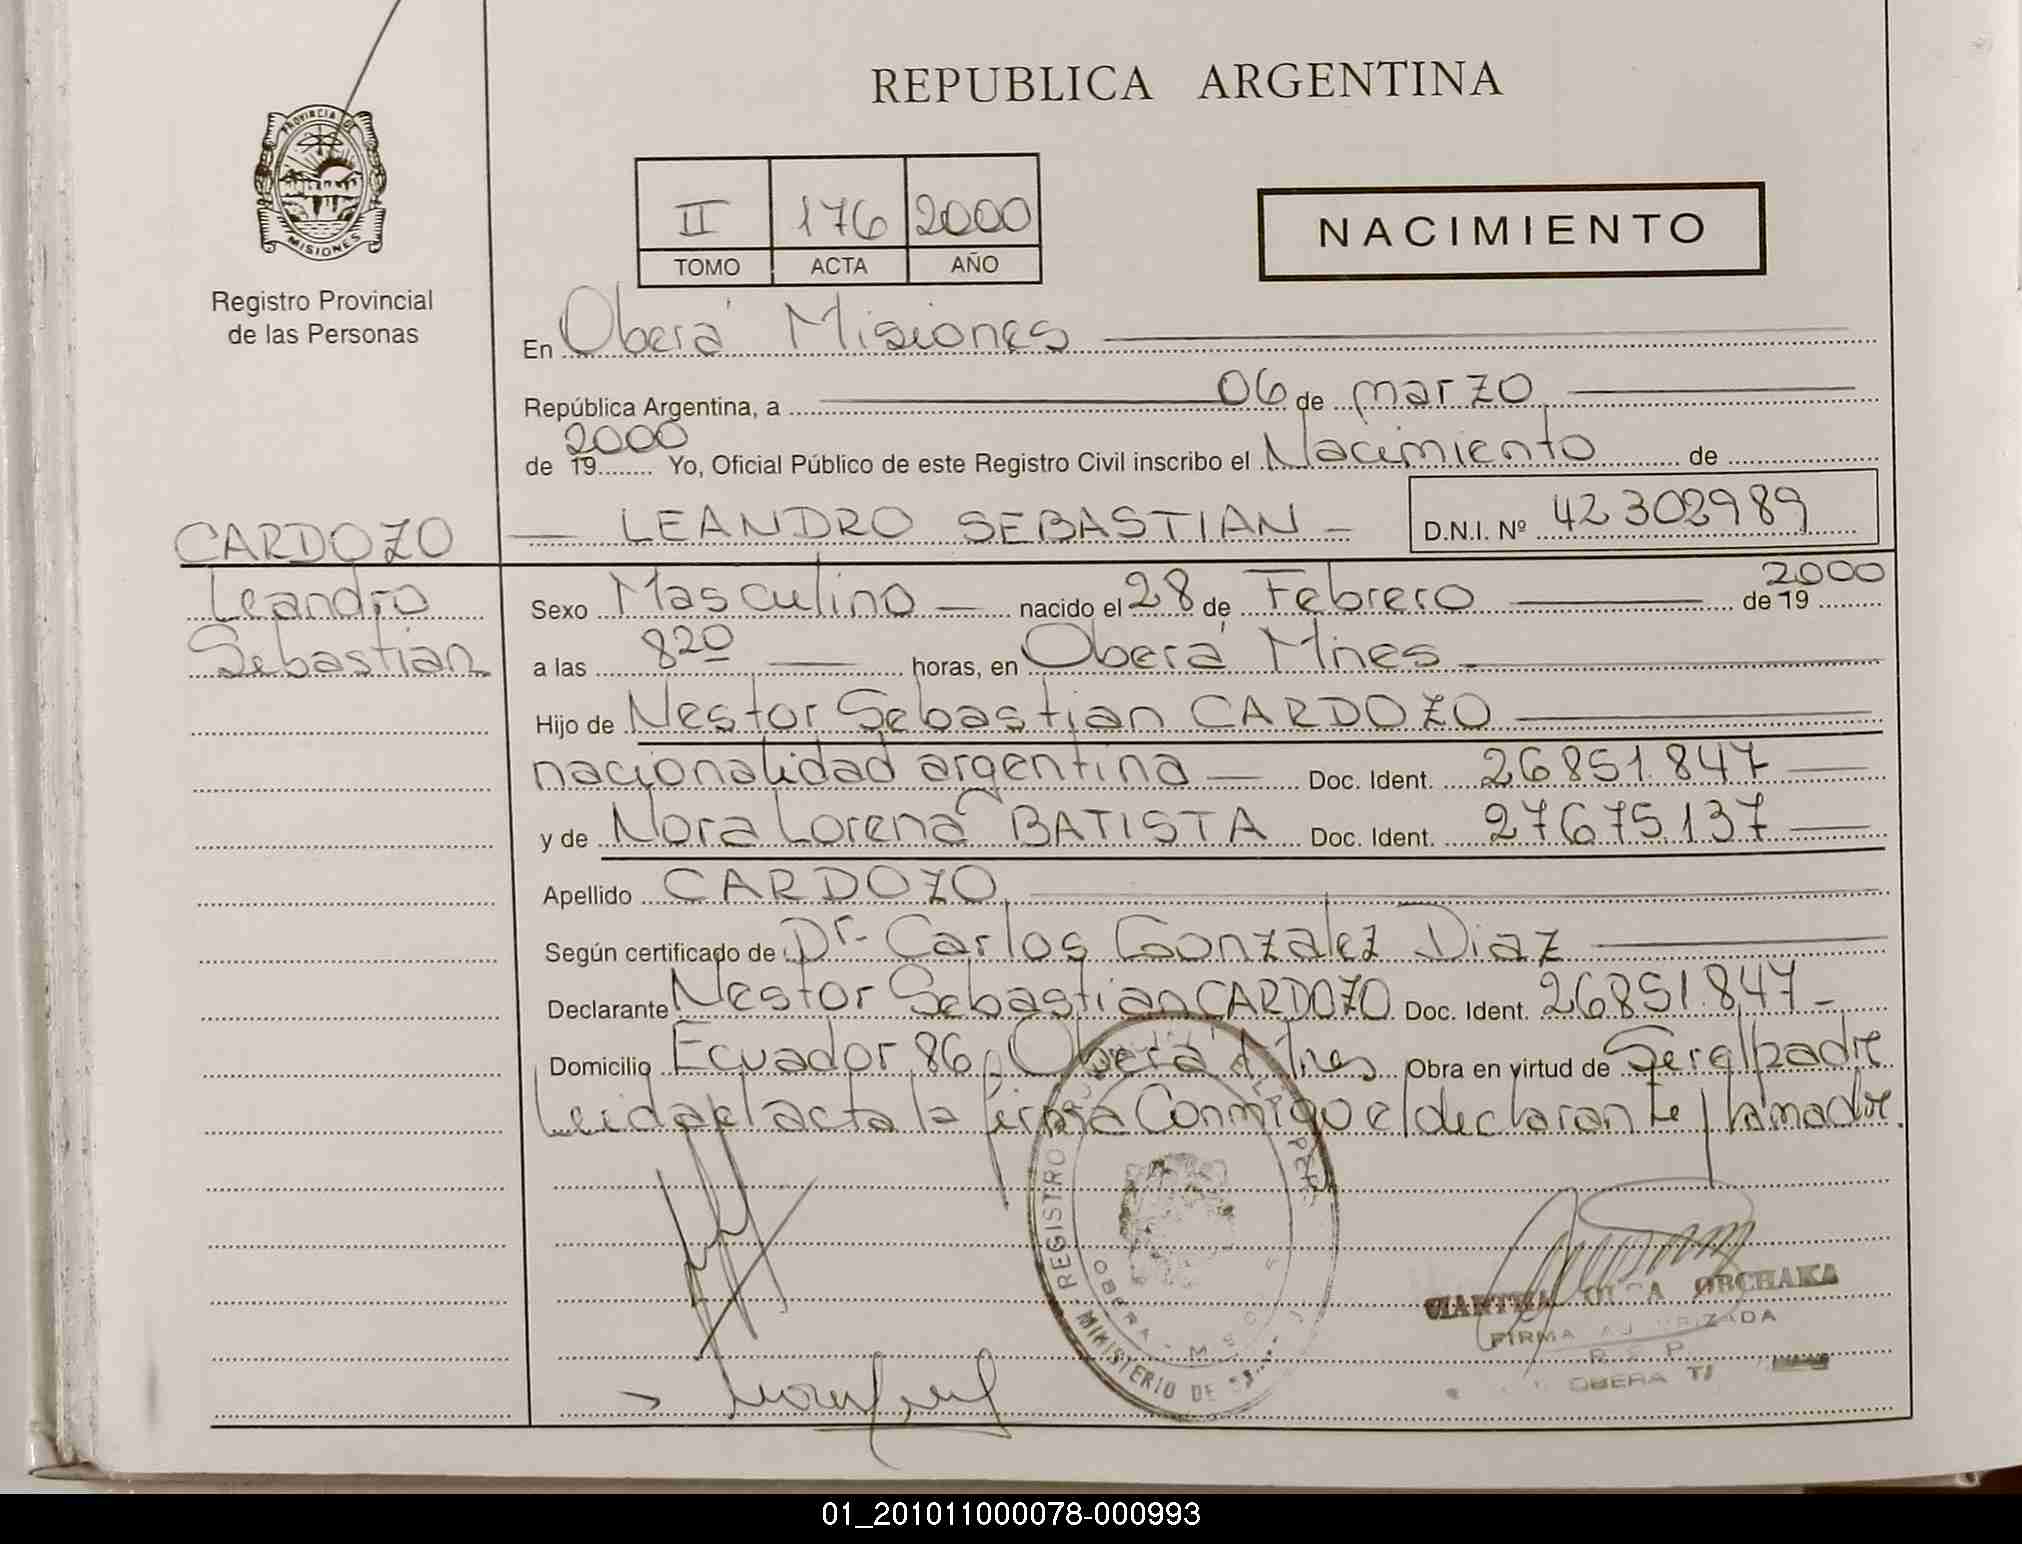 REPUBLICA ARGENTINA
PROVINCIA DE
MISIONES
Registro Provincial
de las Personas
II 176 2000
TOMO ACTA AÑO
NACIMIENTO
En Oberá Misiones
República Argentina, a 06 de marzo
2000
de 19........ Yo, Oficial Público de este Registro Civil inscribo el Nacimiento de
CARDOZO
Leandro
Sebastian
LEANDRO SEBASTIAN D.N.I. Nº 42302989
Sexo Masculino nacido el 28 de Febrero de 19 2000
a las 820 horas, en Oberá Mnes
Hijo de Nestor Sebastian CARDOZO
nacionalidad argentina Doc. Ident. 26851.847
y de Nora Lorena BATISTA Doc. Ident. 27675.137
Apellido CARDOZO
Según certificado de Dr. Carlos Gonzalez Diaz
Declarante Nestor Sebastian CARDOZO Doc. Ident. 26851.847
Domicilio Ecuador 86, Oberá Mnes Obra en virtud de Ser el padre
Leida el acta la firma Conmigo el declarante y la madre.
REGISTRO
OBERA - MS
MINISTERIO DE
MARTHA OLGA ORCHAKA
FIRMA AUTORIZADA
R C P
OBERA
01_201011000078-000993